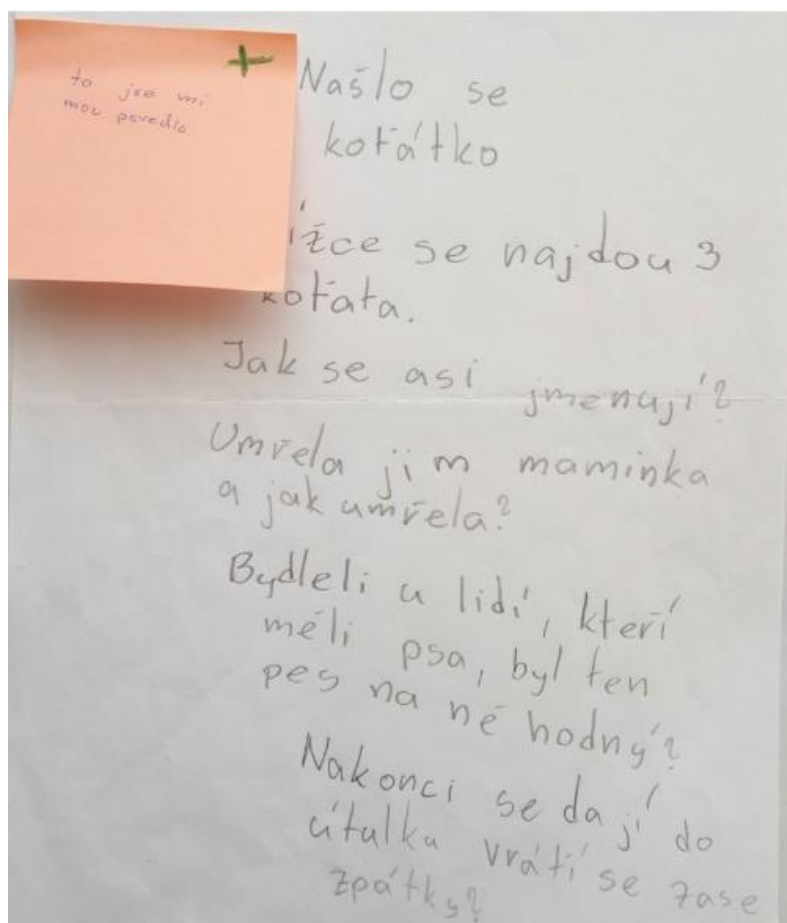 to jse mi
moc povedlo
Našlo se
koťátko
se najdou 3
koťata.
Jak se asi jmenují?
Umřela jim maminka
a jak umřela?
Bydleli u lidí, kteří
měli psa, byl ten
pes na ně hodný?
Nakonci se dají do
útulku vrátí se zase
zpátky?